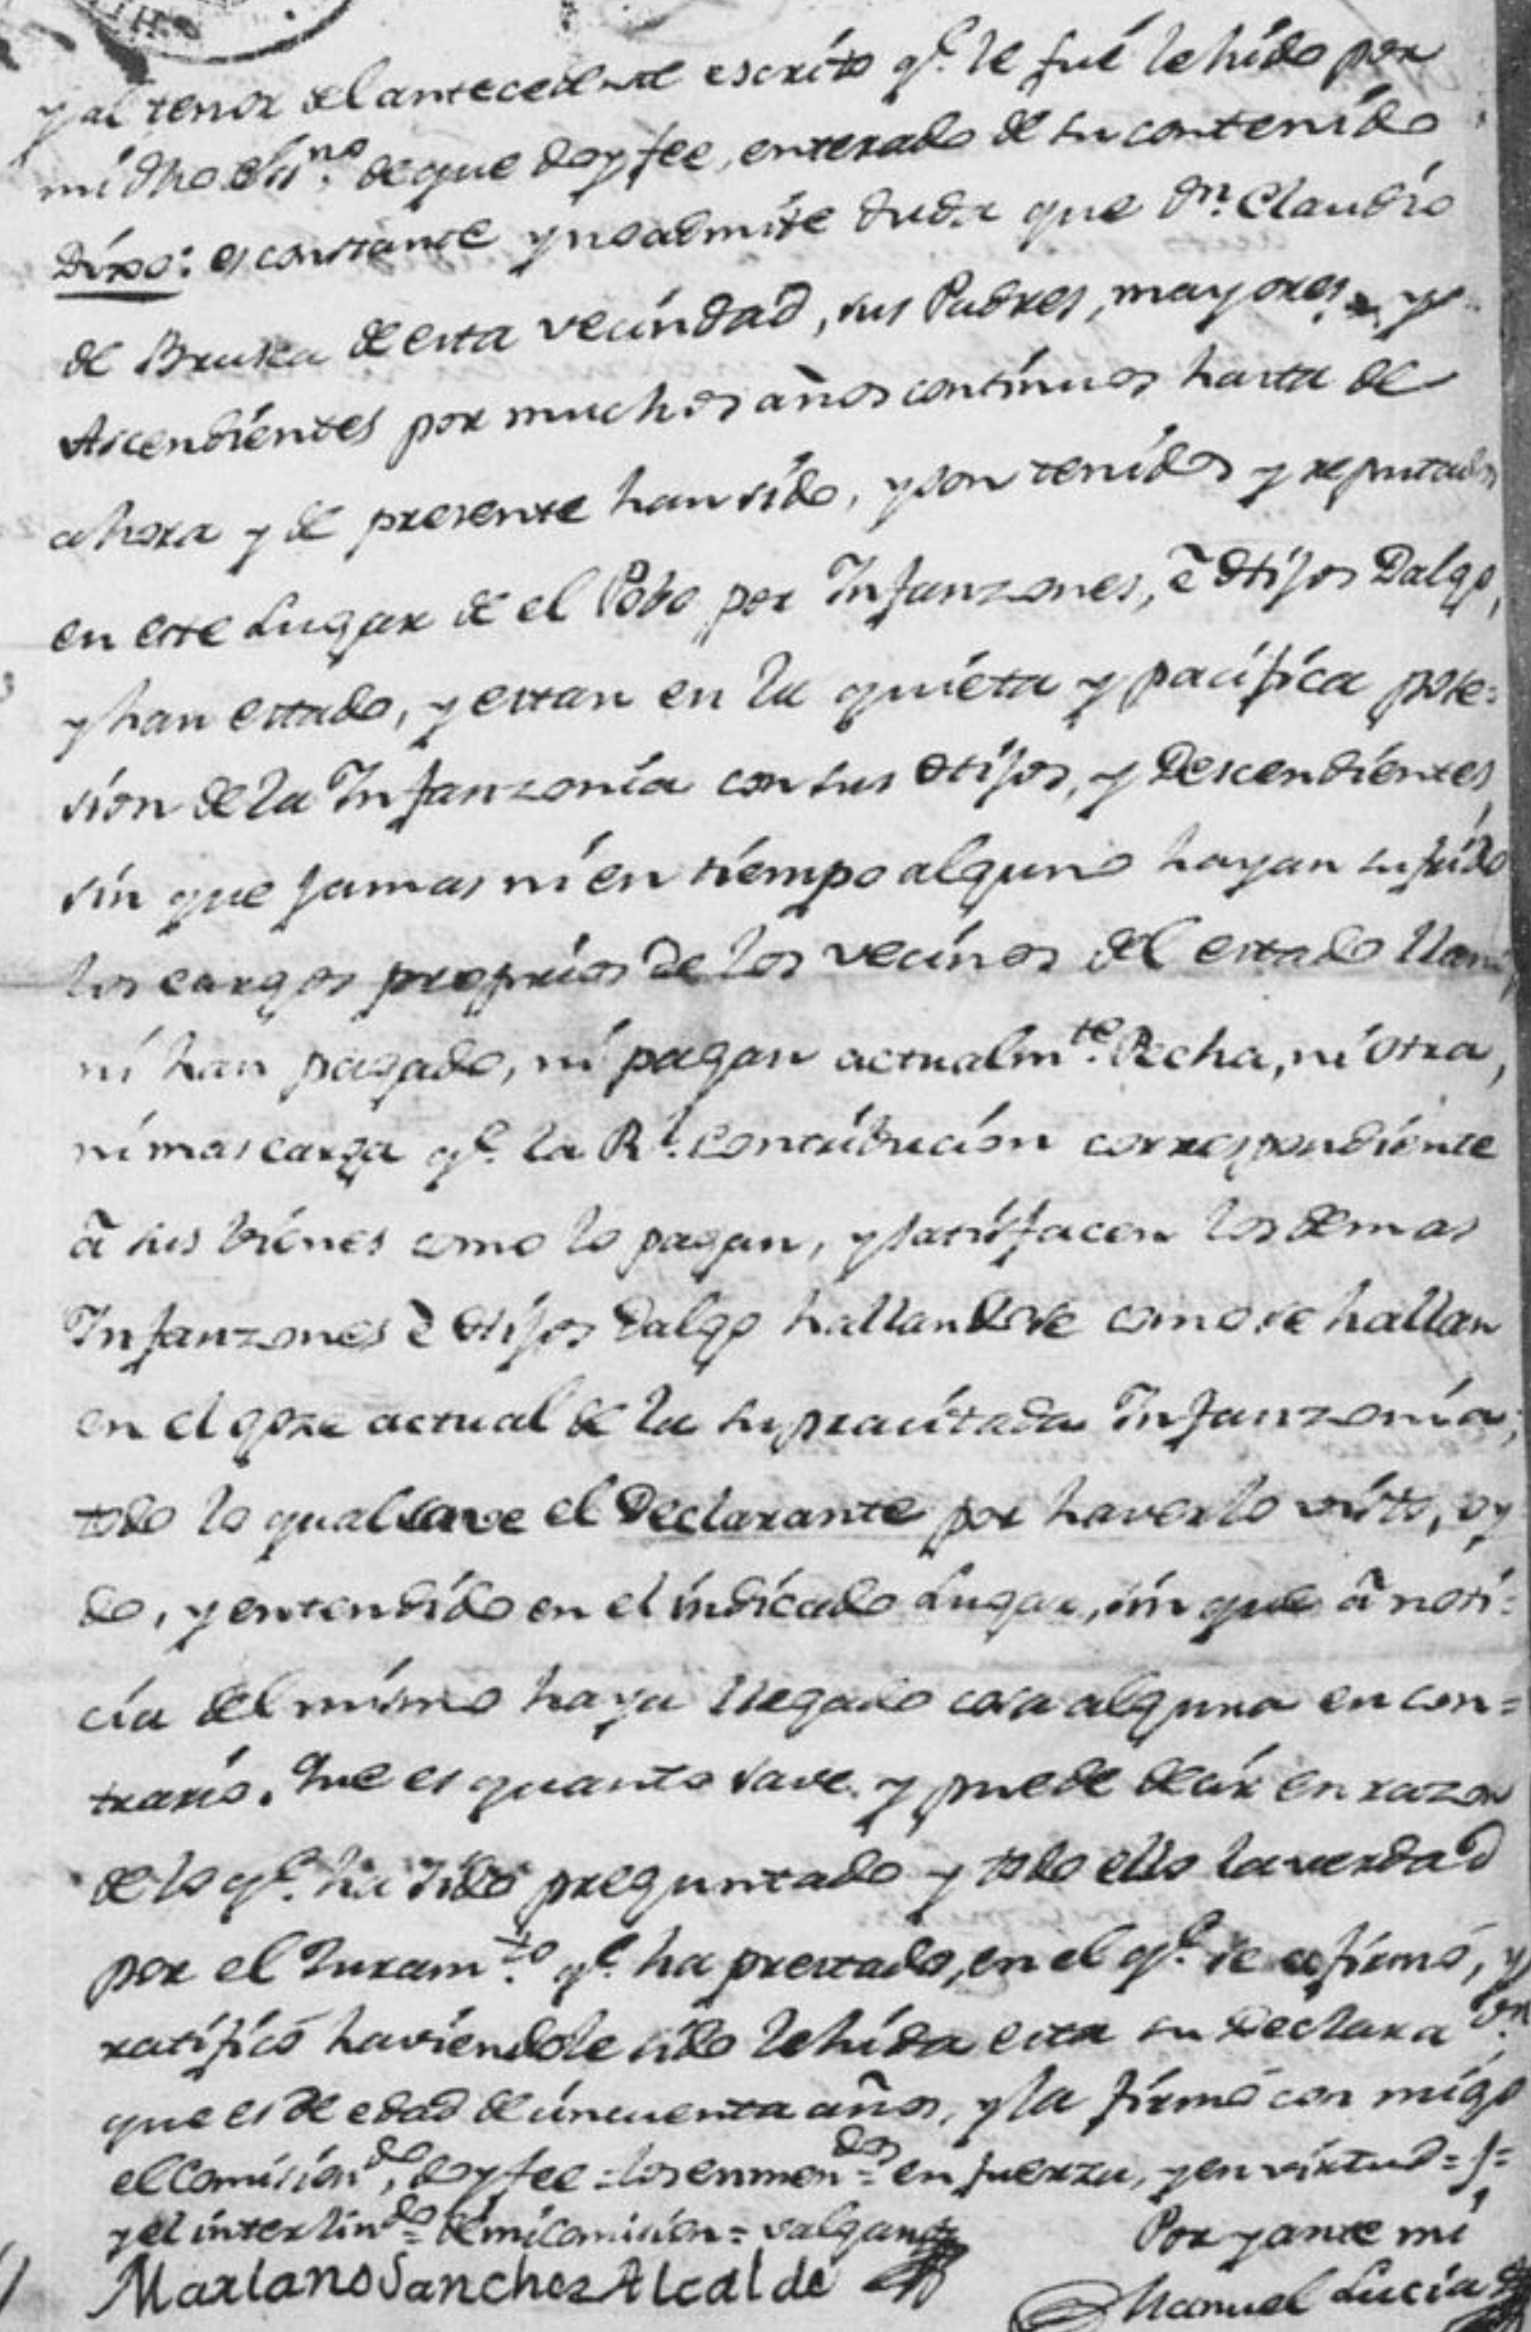 y al tenor del antecedente escrito q.e le fué lehido por
mi dho Es.no de que doy fee, enterado de su contenido
Dixo: es constante y no admite duda que Dn. Claudio
de Brusca de esta vecindad, sus Padres, mayores, y
Ascendientes por muchos años contínuos hasta de
ahora y de presente han sido, y son tenidos y reputados
en este Lugar de el Pobo por Infanzones, ê Hijos Dalgo,
y han estado, y estan en la quieta y pacifica pose=
sion de la Infanzonía con sus Hijos, y Descendientes,
sin que jamas ni en tiempo alguno hayan sufrido
los cargos proprios de los vecinos del estado llano,
ni han pagado, ni pagan actualm.te Pecha, ni otra,
ni mas carga q.e la R.l Contribucion correspondiente
â sus bienes como lo pagan, y satisfacen los demas
Infanzones ê Hijos Dalgo hallandose como se hallan
en el goze actual de la supracitada Infanzonía;
todo lo qual save el Declarante por haverlo visto, oy
do, y entendido en el indicado Lugar, sin que â noti=
cia del mismo haya llegado cosa alguna en con=
trario. Que es quanto save y puede decir en razon
de lo q.e ha sido preguntado y todo ello la verdad
por el Juram.to q.e ha prestado, en el q.e se afirmó, y
ratificó haviendole sido lehida esta su Declara.on
que es de edad de cincuenta años, y la firmó con migo
el Comision.do, doy fee = los enmen.dos = en fuerza, y en virtud = y =
y el interlin.do = de mi comision = valgan
Mariano Sanchez Alcalde
Por y ante mi
Manuel Lucia